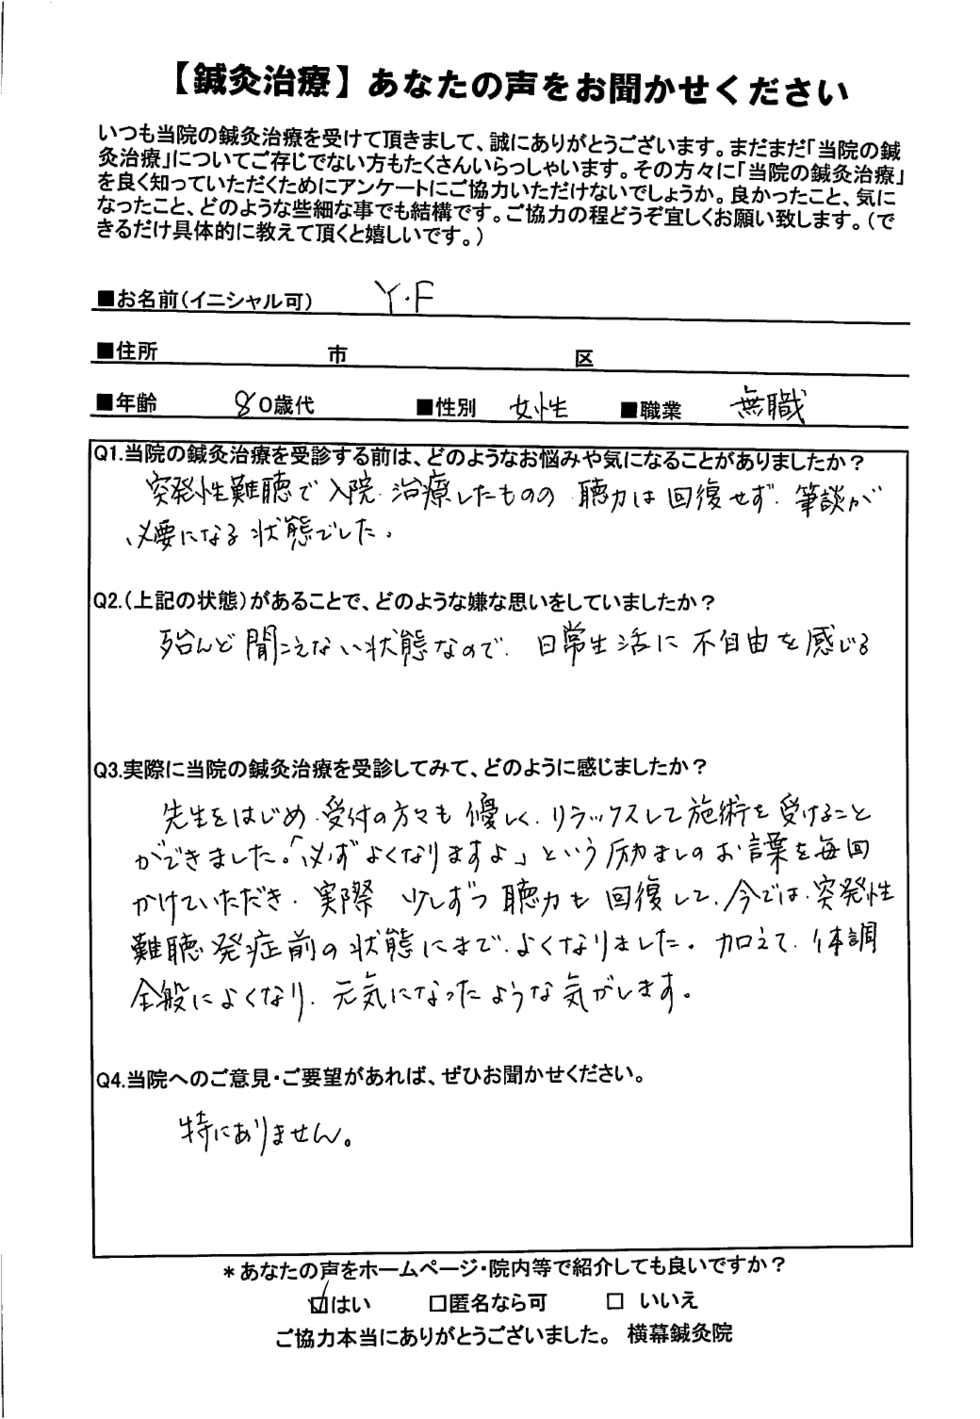 【鍼灸治療】あなたの声をお聞かせください
いつも当院の鍼灸治療を受けて頂きまして、誠にありがとうございます。まだまだ「当院の鍼
灸治療」についてご存じでない方もたくさんいらっしゃいます。その方々に「当院の鍼灸治療」
を良く知っていただくためにアンケートにご協力いただけないでしょうか。良かったこと、気に
なったこと、どのような些細な事でも結構です。ご協力の程どうぞ宜しくお願い致します。（で
きるだけ具体的に教えて頂くと嬉しいです。）
■お名前（イニシャル可） Y.F
■住所 市 区
■年齢 80歳代 ■性別 女性 ■職業 無職
Q1.当院の鍼灸治療を受診する前は、どのようなお悩みや気になることがありましたか？
突発性難聴で入院、治療したものの 聴力は回復せず、筆談が
必要になる状態でした。
Q2.（上記の状態）があることで、どのような嫌な思いをしていましたか？
殆んど聞こえない状態なので、日常生活に不自由を感じる
Q3.実際に当院の鍼灸治療を受診してみて、どのように感じましたか？
先生をはじめ、受付の方々も優しく、リラックスして施術を受けること
ができました。「必ずよくなりますよ」という励ましのお言葉を毎回
かけていただき、実際 少しずつ聴力も回復して、今では、突発性
難聴発症前の状態にまで、よくなりました。加えて、体調
全般によくなり、元気になったような気がします。
Q4.当院へのご意見・ご要望があれば、ぜひお聞かせください。
特にありません。
＊あなたの声をホームページ・院内等で紹介しても良いですか？
☑はい □匿名なら可 □ いいえ
ご協力本当にありがとうございました。 横幕鍼灸院